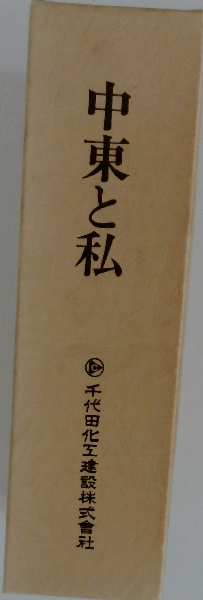 中東と私
千代田化工建設株式會社